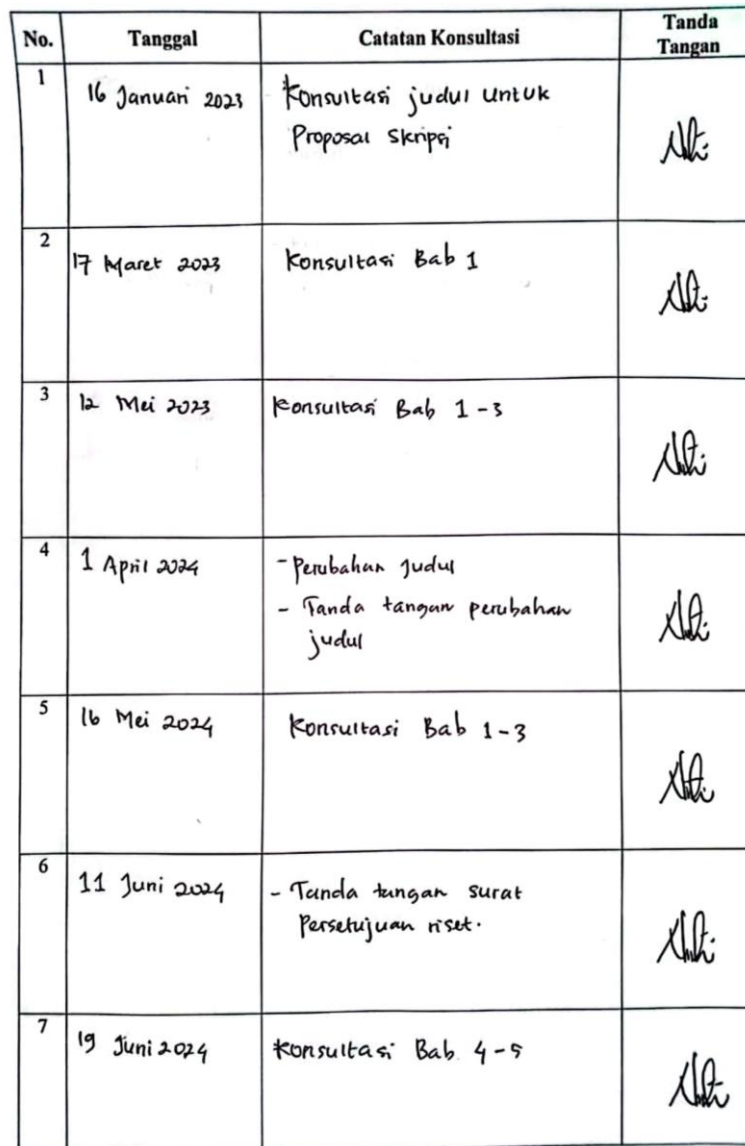 No. Tanggal Catatan Konsultasi Tanda Tangan
1 16 Januari 2023 Konsultasi judul untuk
Proposal Skripsi
2 17 Maret 2023 Konsultasi Bab 1
3 12 Mei 2023 Konsultasi Bab 1-3
4 1 April 2024 - Perubahan Judul
- Tanda tangan perubahan
judul
5 16 Mei 2024 Konsultasi Bab 1-3
6 11 Juni 2024 - Tanda tangan surat
Persetujuan riset.
7 19 Juni 2024 Konsultasi Bab 4-5